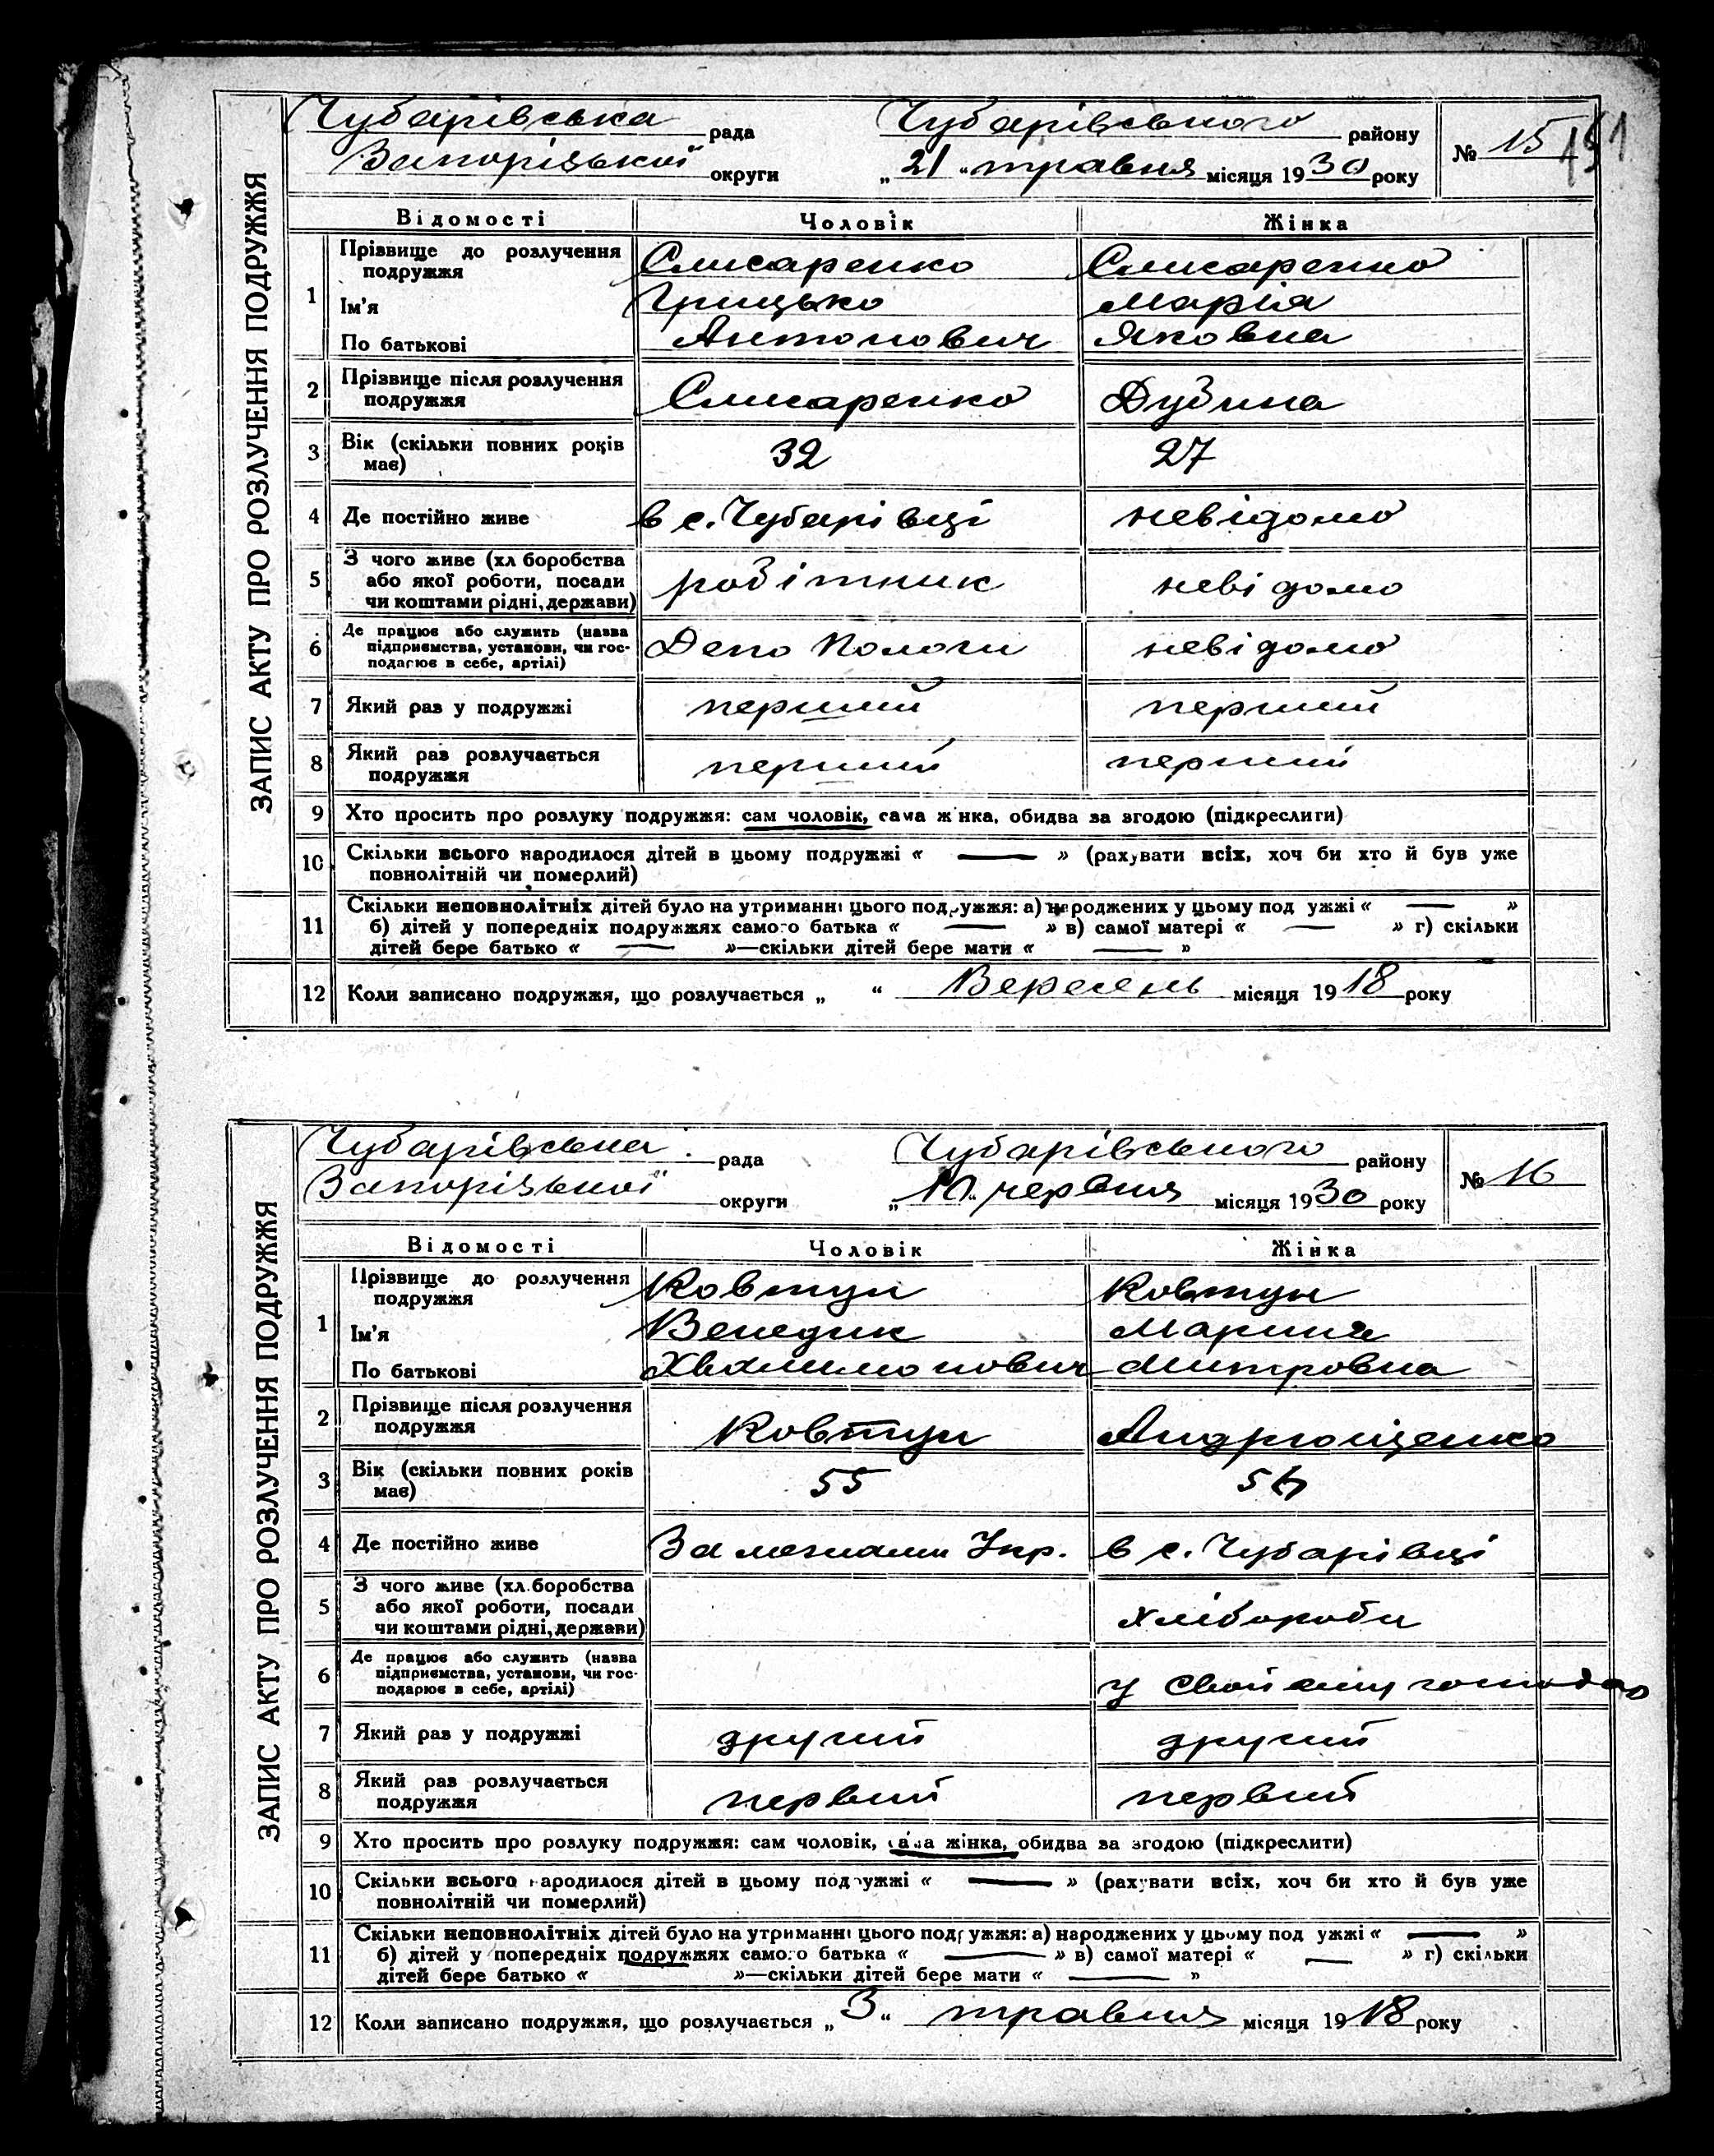 ЗАПИС АКТУ ПРО РОЗЛУЧЕННЯ ПОДРУЖЖЯ
Чубарівська рада Чубарівського району № 15 151
Запорізької округи „21“ травня місяця 1930 року
Відомості Чоловік Жінка
1 Прізвище до розлучення подружжя Слисаренко Слисаренко
Ім'я Грицько Марія
По батькові Антонович Яковна
2 Прізвище після розлучення подружжя Слисаренко Дубина
3 Вік (скільки повних років має) 32 27
4 Де постійно живе в с. Чубарівці невідомо
5 З чого живе (хл боробства або якої роботи, посади чи коштами рідні, держави) робітник невідомо
6 Де працює або служить (назва підприємства, установи, чи господарює в себе, артілі) Депо Пологи невідомо
7 Який раз у подружжі перший перший
8 Який раз розлучається подружжя перший перший
9 Хто просить про розлуку подружжя: сам чоловік, сама жінка, обидва за згодою (підкреслити)
10 Скільки всього народилося дітей в цьому подружжі « — » (рахувати всіх, хоч би хто й був уже
повнолітній чи померлий)
11 Скільки неповнолітніх дітей було на утриманні цього подружжя: а) народжених у цьому подружжі « — »
б) дітей у попередніх подружжях самого батька « — » в) самої матері « — » г) скільки
дітей бере батько « — »—скільки дітей бере мати « — »
12 Коли записано подружжя, що розлучається „ “ Вересень місяця 1918 року
ЗАПИС АКТУ ПРО РОЗЛУЧЕННЯ ПОДРУЖЖЯ
Чубарівська рада Чубарівського району № 16
Запорізької округи „10“ червня місяця 1930 року
Відомості Чоловік Жінка
1 Прізвище до розлучення подружжя Ковтун Ковтун
Ім'я Венедик Марина
По батькові Хвилимонович Митровна
2 Прізвище після розлучення подружжя Ковтун Андрющенко
3 Вік (скільки повних років має) 55
4 Де постійно живе За межами Укр. в с. Чубарівці
5 З чого живе (хл.боробства або якої роботи, посади чи коштами рідні, держави) хлібороби
6 Де працює або служить (назва підприємства, установи, чи господарює в себе, артілі) у своїому господар
7 Який раз у подружжі другий другий
8 Який раз розлучається подружжя первий первий
9 Хто просить про розлуку подружжя: сам чоловік, сама жінка, обидва за згодою (підкреслити)
10 Скільки всього народилося дітей в цьому подружжі « — » (рахувати всіх, хоч би хто й був уже
повнолітній чи померлий)
11 Скільки неповнолітніх дітей було на утриманні цього подружжя: а) народжених у цьому подружжі « — »
б) дітей у попередніх подружжях самого батька « — » в) самої матері « — » г) скільки
дітей бере батько « »—скільки дітей бере мати « — »
12 Коли записано подружжя, що розлучається „3“ травня місяця 1918 року